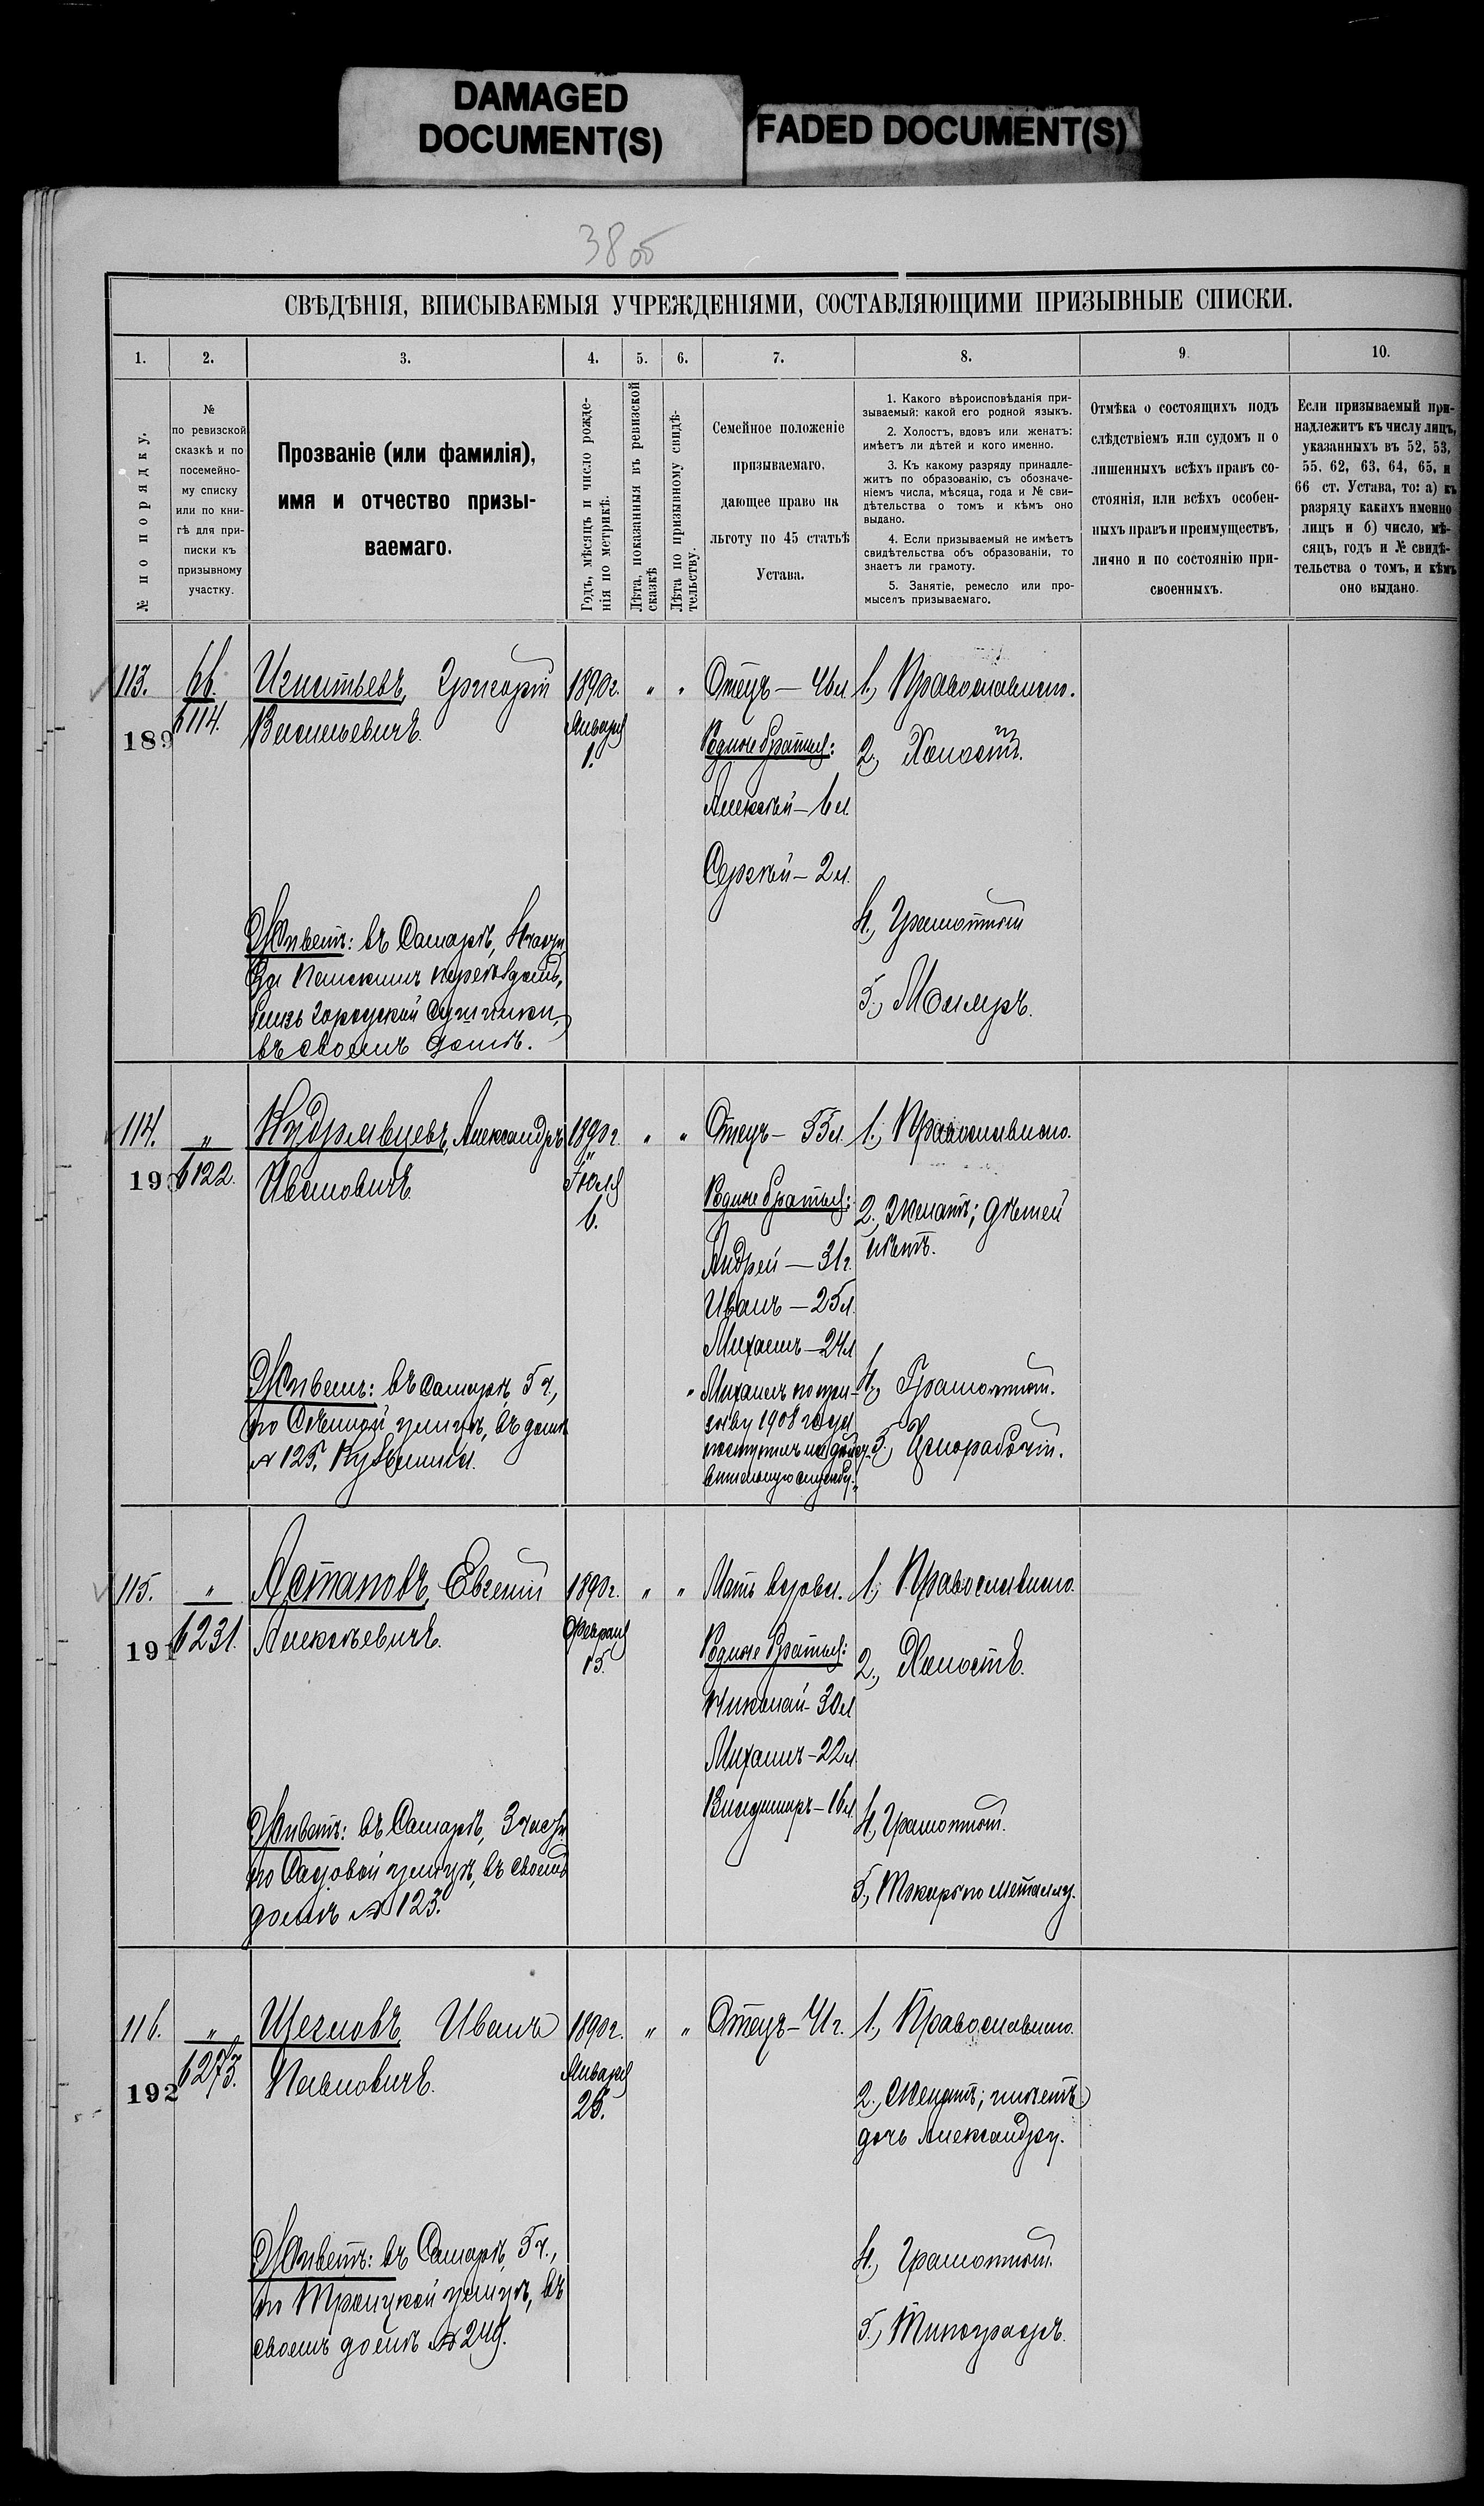 DAMAGED
DOCUMENT(S)
FADED DOCUMENT(S)
38 об
СВѢДѢНІЯ, ВПИСЫВАЕМЫЯ УЧРЕЖДЕНІЯМИ, СОСТАВЛЯЮЩИМИ ПРИЗЫВНЫЕ СПИСКИ.
1. 2. 3. 4. 5. 6. 7. 8. 9. 10.
№ по порядку.
№
по ревизской
сказкѣ и по
посемейно-
му списку
или по кни-
гѣ для при-
писки къ
призывному
участку.
Прозваніе (или фамилія),
имя и отчество призы-
ваемаго.
Годъ, мѣсяцъ и число рожде-
нія по метрикѣ.
Лѣта, показанныя въ ревизской
сказкѣ
Лѣта по призывному свидѣ-
тельству.
Семейное положеніе
призываемаго,
дающее право на
льготу по 45 статьѣ
Устава.
1. Какого вѣроисповѣданія при-
зываемый: какой его родной языкъ.
2. Холостъ, вдовъ или женатъ:
имѣетъ ли дѣтей и кого именно.
3. Къ какому разряду принадле-
житъ по образованію, съ обозначе-
ніемъ числа, мѣсяца, года и № сви-
дѣтельства о томъ и кѣмъ оно
выдано.
4. Если призываемый не имѣетъ
свидѣтельства объ образованіи, то
знаетъ ли грамоту.
5. Занятіе, ремесло или про-
мыселъ призываемаго.
Отмѣка о состоящихъ подъ
слѣдствіемъ или судомъ и о
лишенныхъ всѣхъ правъ со-
стоянія, или всѣхъ особен-
ныхъ правъ и преимуществъ,
лично и по состоянію при-
своенныхъ.
Если призываемый при-
надлежитъ къ числу лицъ,
указанныхъ въ 52, 53,
55, 62, 63, 64, 65, и
66 ст. Устава, то: а) къ
разряду какихъ именно
лицъ и б) число, мѣ-
сяцъ, годъ и № свидѣ-
тельства о томъ, и кѣмъ
оно выдано.
113.
189
66.
6114.
Игнатьевъ, Григорій
Васильевичъ.
Живетъ: въ Самарѣ, 4 части,
близь городской
въ своемъ домѣ.
1890 г.
Января
1.
" "
Отецъ — 46 л.
Родные братья:
Алексѣй — 6 л.
Сергѣй — 2 л.
1, Православнаго.
2, Холостъ.
4, Грамотный
5, Маляръ.
114.
190
"
6122.
Кудрявцевъ, Александръ
Ивановичъ.
Живетъ: въ Самарѣ, 5 ч.,
по Сѣнной улицѣ, въ домѣ
№ 125,
1890 г.
Іюля
6.
" "
Отецъ — 55 л.
Родные братья:
Андрей — 31 г.
Иванъ — 25 л.
Михаилъ — 24 л.
" Михаилъ по при-
зыву 1908 года
поступилъ на дѣйст-
вительную службу."
1, Православнаго.
2, Женатъ; дѣтей
нѣтъ.
4, Грамотный.
5, Чернорабочій.
115.
191
"
6231.
Астаповъ, Евгеній
Алексѣевичъ.
Живетъ: въ Самарѣ, 3 части
по Садовой улицѣ, въ своемъ
домѣ № 123.
1890 г.
Февраля
15.
" "
Мать вдова.
Родные братья:
Николай — 30 л.
Михаилъ — 22 л.
Владиміръ — 16 л.
1, Православнаго.
2, Холостъ.
4, Грамотный.
5, Токарь по металлу.
116.
192
"
6273.
Щегловъ, Иванъ
Павловичъ.
Живетъ: въ Самарѣ, 5 ч.,
по Троицкой улицѣ, въ
своемъ домѣ №
1890 г.
Января
26.
" "
Отецъ — 41 г.
1, Православнаго.
2, Женатъ; имѣетъ
дочь Александру.
4, Грамотный.
5, Типографъ.